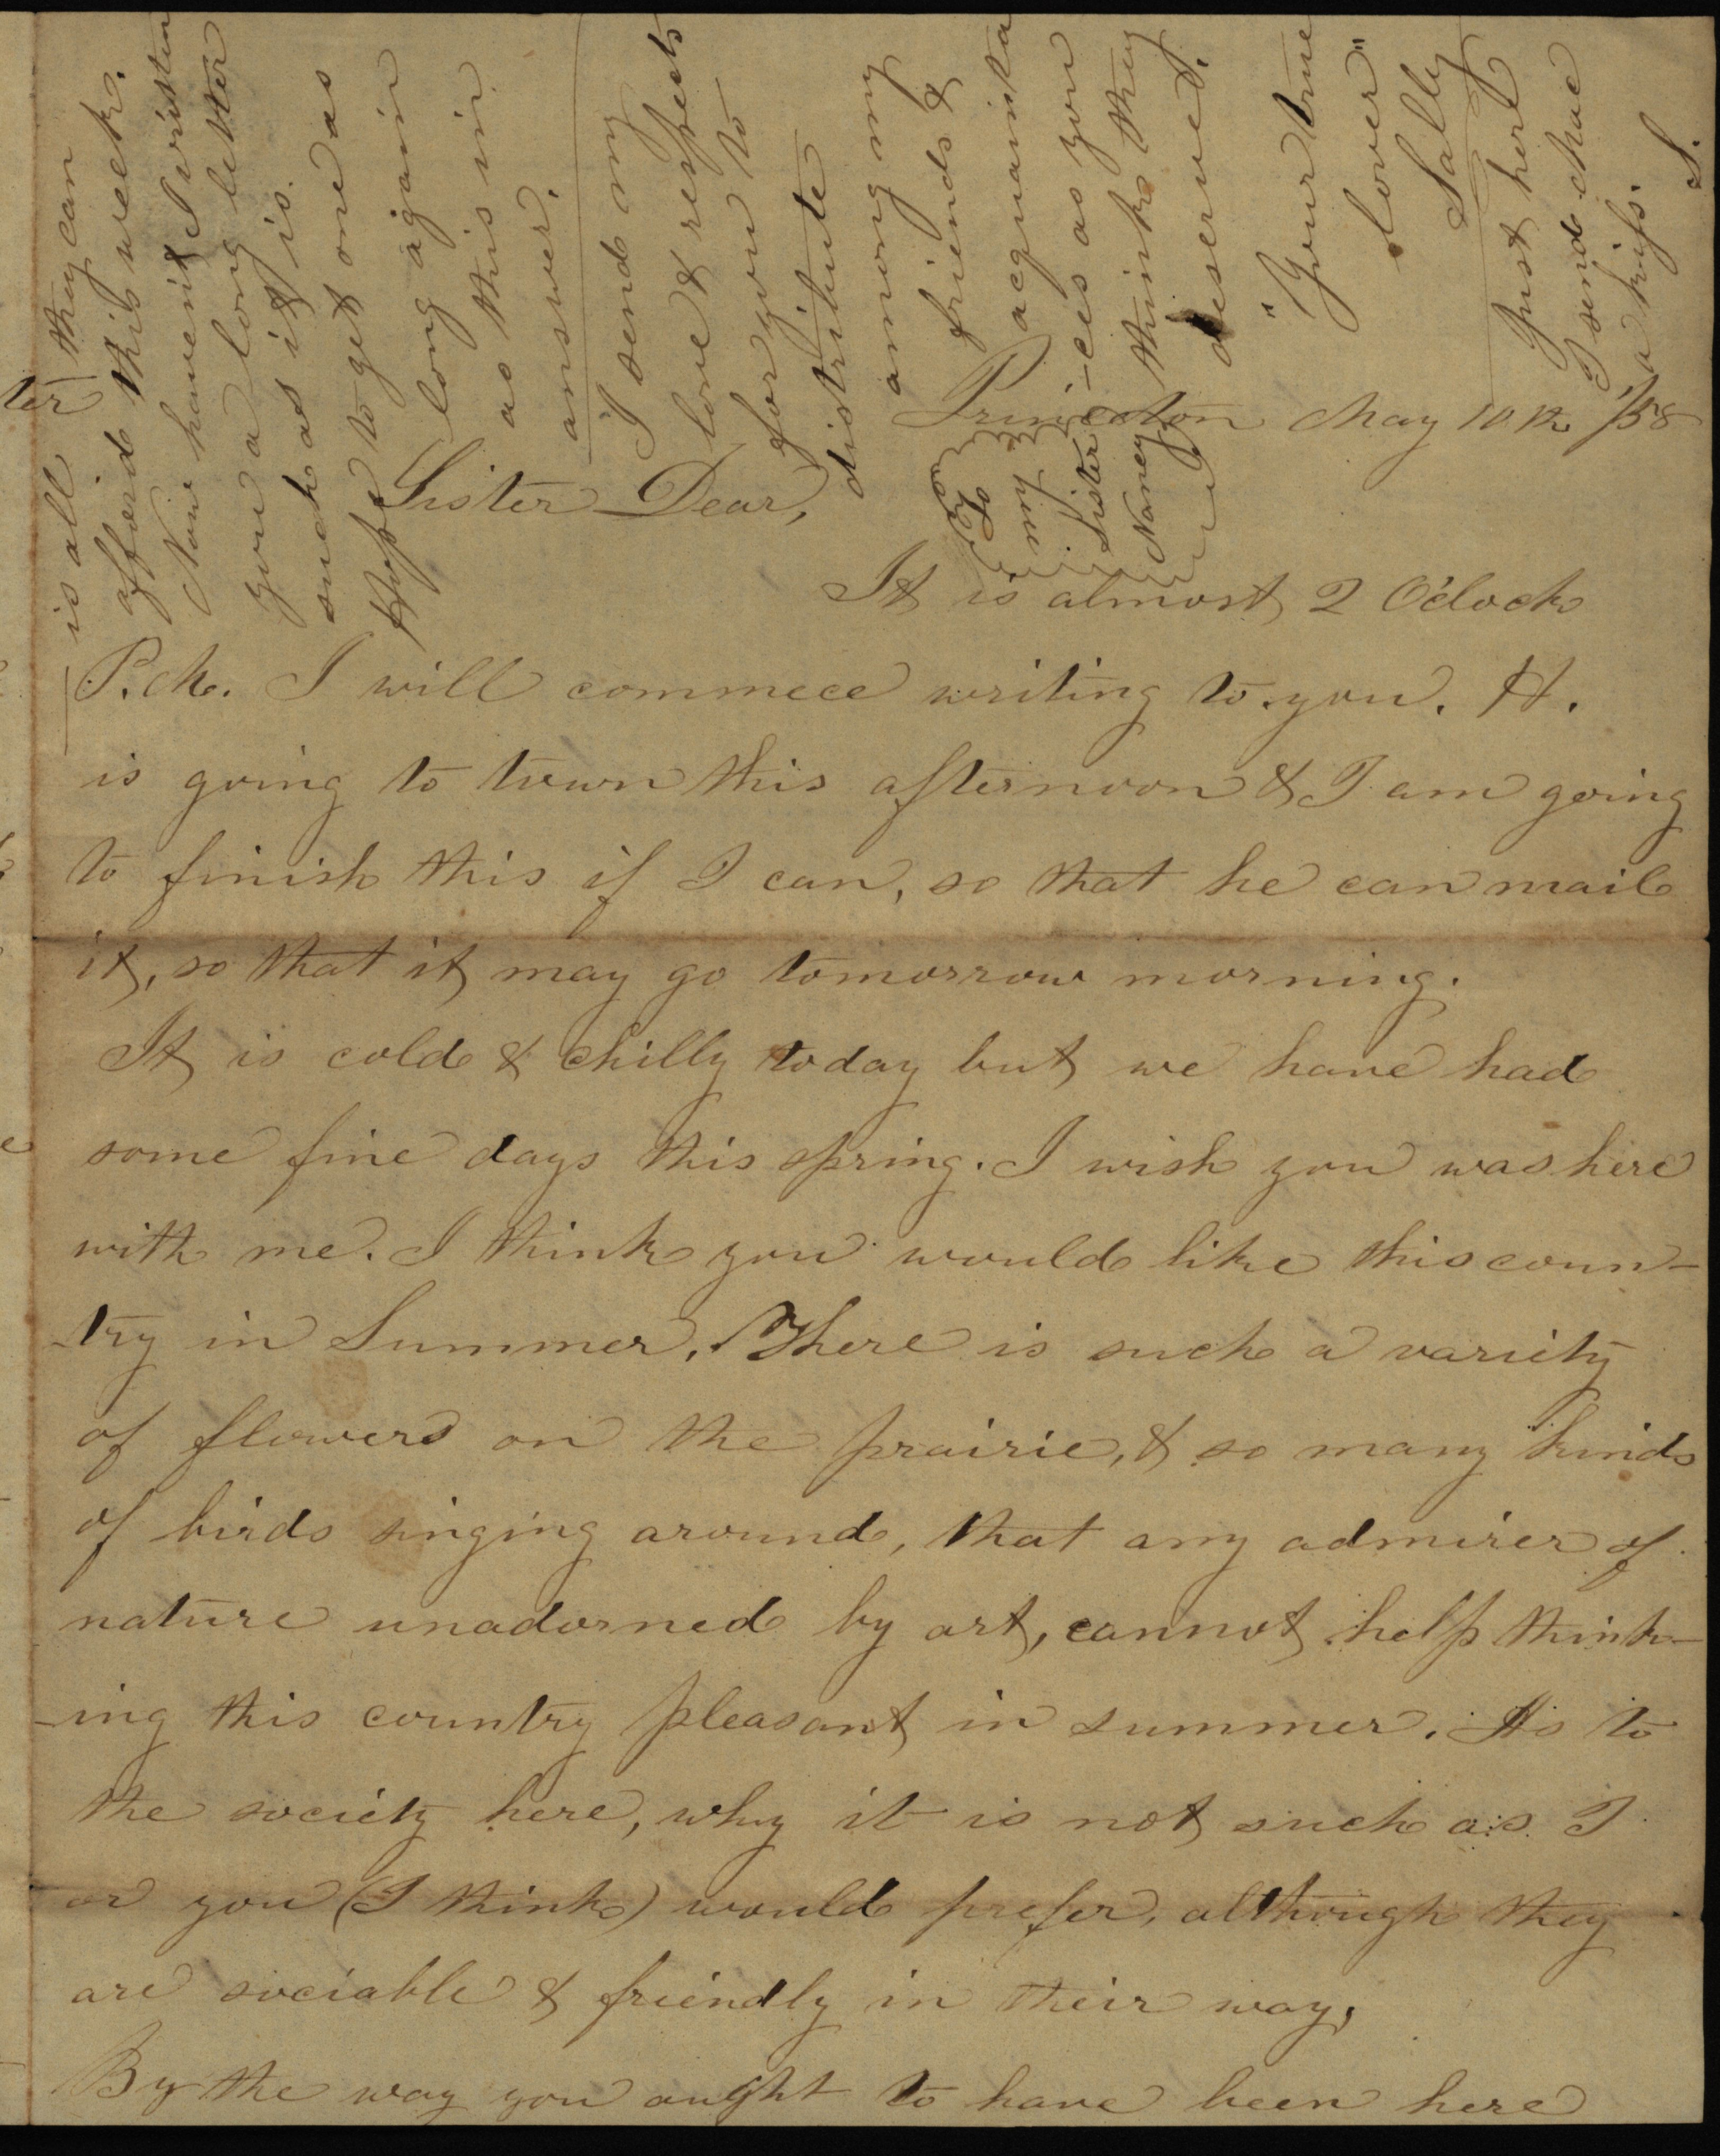 Princeton May 10th /58
Sister Dear,
To
my
Sister
Nancy
It is almost 2 O'clock
P.M. I will commece writing to you. H.
is going to town this afternoon & I am going
to finish this if I can, so that he can mail
it, so that it may go tomorrow morning.
It is cold & chilly today but we have had
some fine days this spring. I wish you was here
with me. I think you would like this coun-
-try in Summer. There is such a variety
of flowers on the prairie, & so many kinds
of birds singing around, that any admirer of
nature unadorned by art, cannot help think-
-ing this country pleasant in summer. As to
the society here, why it is not such as I
or you (I think) would prefer, although they
are sociable & friendly in their way,
By the way you aught to have been here
ter
is all they can
afford this week.
Now havent I written
you a long letter
such as it is.
Hope to get one as
long again
as this in
answer.
I send my
love & respects
for you to
distribute
among my
friends &
acquainta
-ces as you
think they
deserve.
"Your true
lover"
Sally
Just here
I send Mae
a kiss.
S.